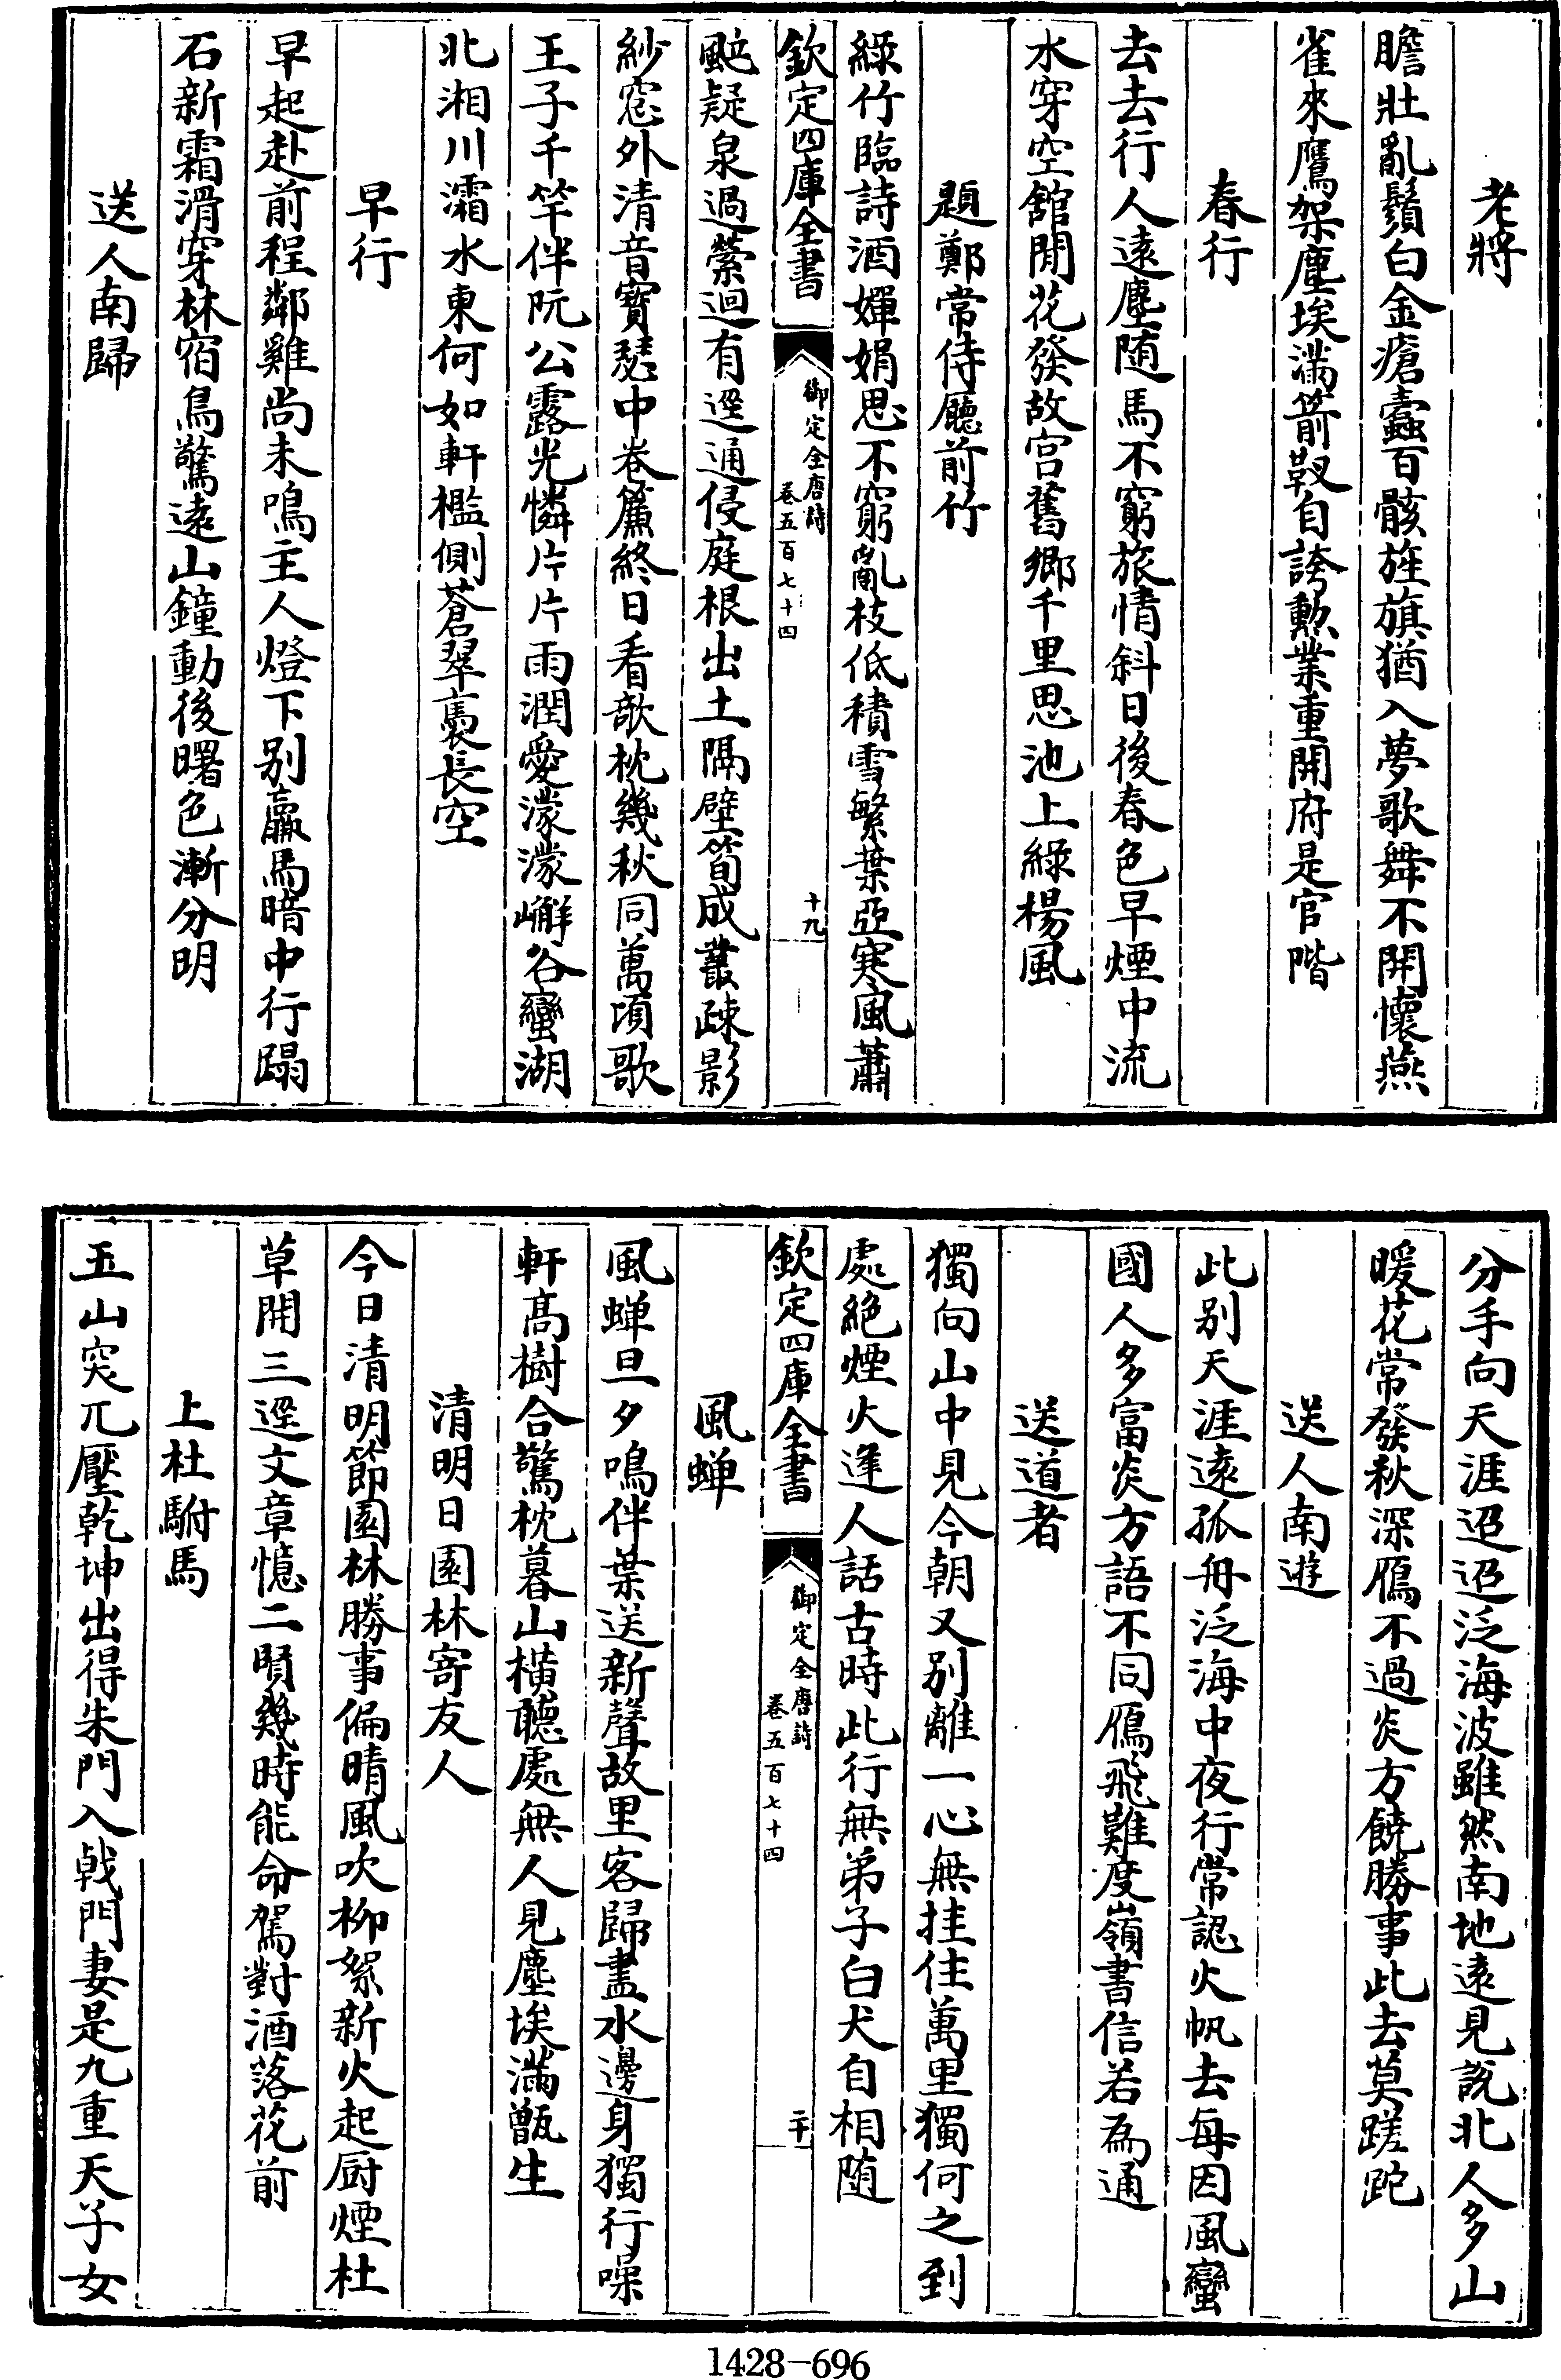 老將
膽壯亂鬚白金瘡蠹百骸旌旗猶入夢歌舞不開懷燕
雀來鷹架塵埃滿箭靫自誇勲業重開府是官階
春行
去去行人遠塵随馬不窮旅情斜日後春色早煙中流
水穿空舘閒花發故宫舊鄉千里思池上緑楊風
題鄭常侍廳前竹
緑竹臨詩酒嬋娟思不窮亂枝低積雪繁葉亞寒風蕭
欽定四庫全書
御定全唐詩
卷五百七十四
十九
颯疑泉過縈迴有逕通侵庭根出土隔壁筍成叢疎影
紗窓外清音寳瑟中卷簾終日看欹枕幾秋同萬頃歌
王子千竿伴阮公露光憐片片雨潤愛濛濛嶰谷蠻湖
北湘川灞水東何如軒檻側蒼翠裊長空
早行
早起赴前程鄰雞尚未鳴主人燈下别羸馬暗中行蹋
石新霜滑穿林宿鳥驚遠山鐘動後曙色漸分明
送人南歸
分手向天涯迢迢泛海波雖然南地遠見説北人多山
暖花常發秋深鴈不過炎方饒勝事此去莫蹉跎
送人南遊
此别天涯遠孤舟泛海中夜行常認火帆去每因風蠻
國人多富炎方語不同鴈飛難度嶺書信若為通
送道者
獨向山中見今朝又别離一心無挂住萬里獨何之到
處絶煙火逢人話古時此行無弟子白犬自相随
欽定四庫全書
御定全唐詩
卷五百七十四
二十
風蟬
風蟬旦夕鳴伴葉送新聲故里客歸盡水邊身獨行噪
軒髙樹合驚枕暮山橫聽處無人見塵埃滿甑生
清明日園林寄友人
今日清明節園林勝事偏晴風吹柳絮新火起厨煙杜
草開三逕文章憶二賢幾時能命駕對酒落花前
上杜駙馬
玉山突兀壓乾坤出得朱門入㦸門妻是九重天子女
1428-696